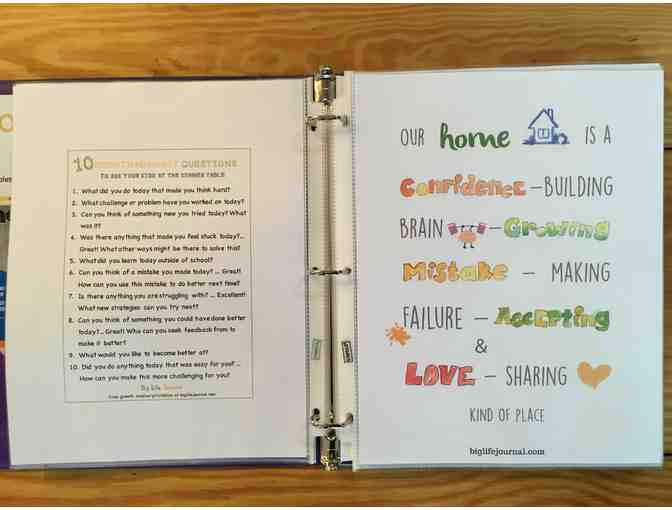 10 GROWTH MINDSET QUESTIONS
TO ASK YOUR KIDS AT THE DINNER TABLE
1. What did you do today that made you think hard?
2. What challenge or problem have you worked on today?
3. Can you think of something new you tried today? What
was it?
4. Was there anything that made you feel stuck today?...
Great! What other ways might be there to solve this?
5. What did you learn today outside of school?
6. Can you think of a mistake you made today? ... Great!
How can you use this mistake to do better next time?
7. Is there anything you are struggling with? ... Excellent!
What new strategies can you try next?
8. Can you think of something you could have done better
today?... Great! Who can you seek feedback from to
make it better?
9. What would you like to become better at?
10. Did you do anything today that was easy for you? ...
How can you make this more challenging for you?
Big Life Journal
OUR home IS A
Confidence - BUILDING
BRAIN - Growing
Mistake - MAKING
FAILURE - Accepting
&
LOVE - SHARING
KIND OF PLACE
biglifejournal.com